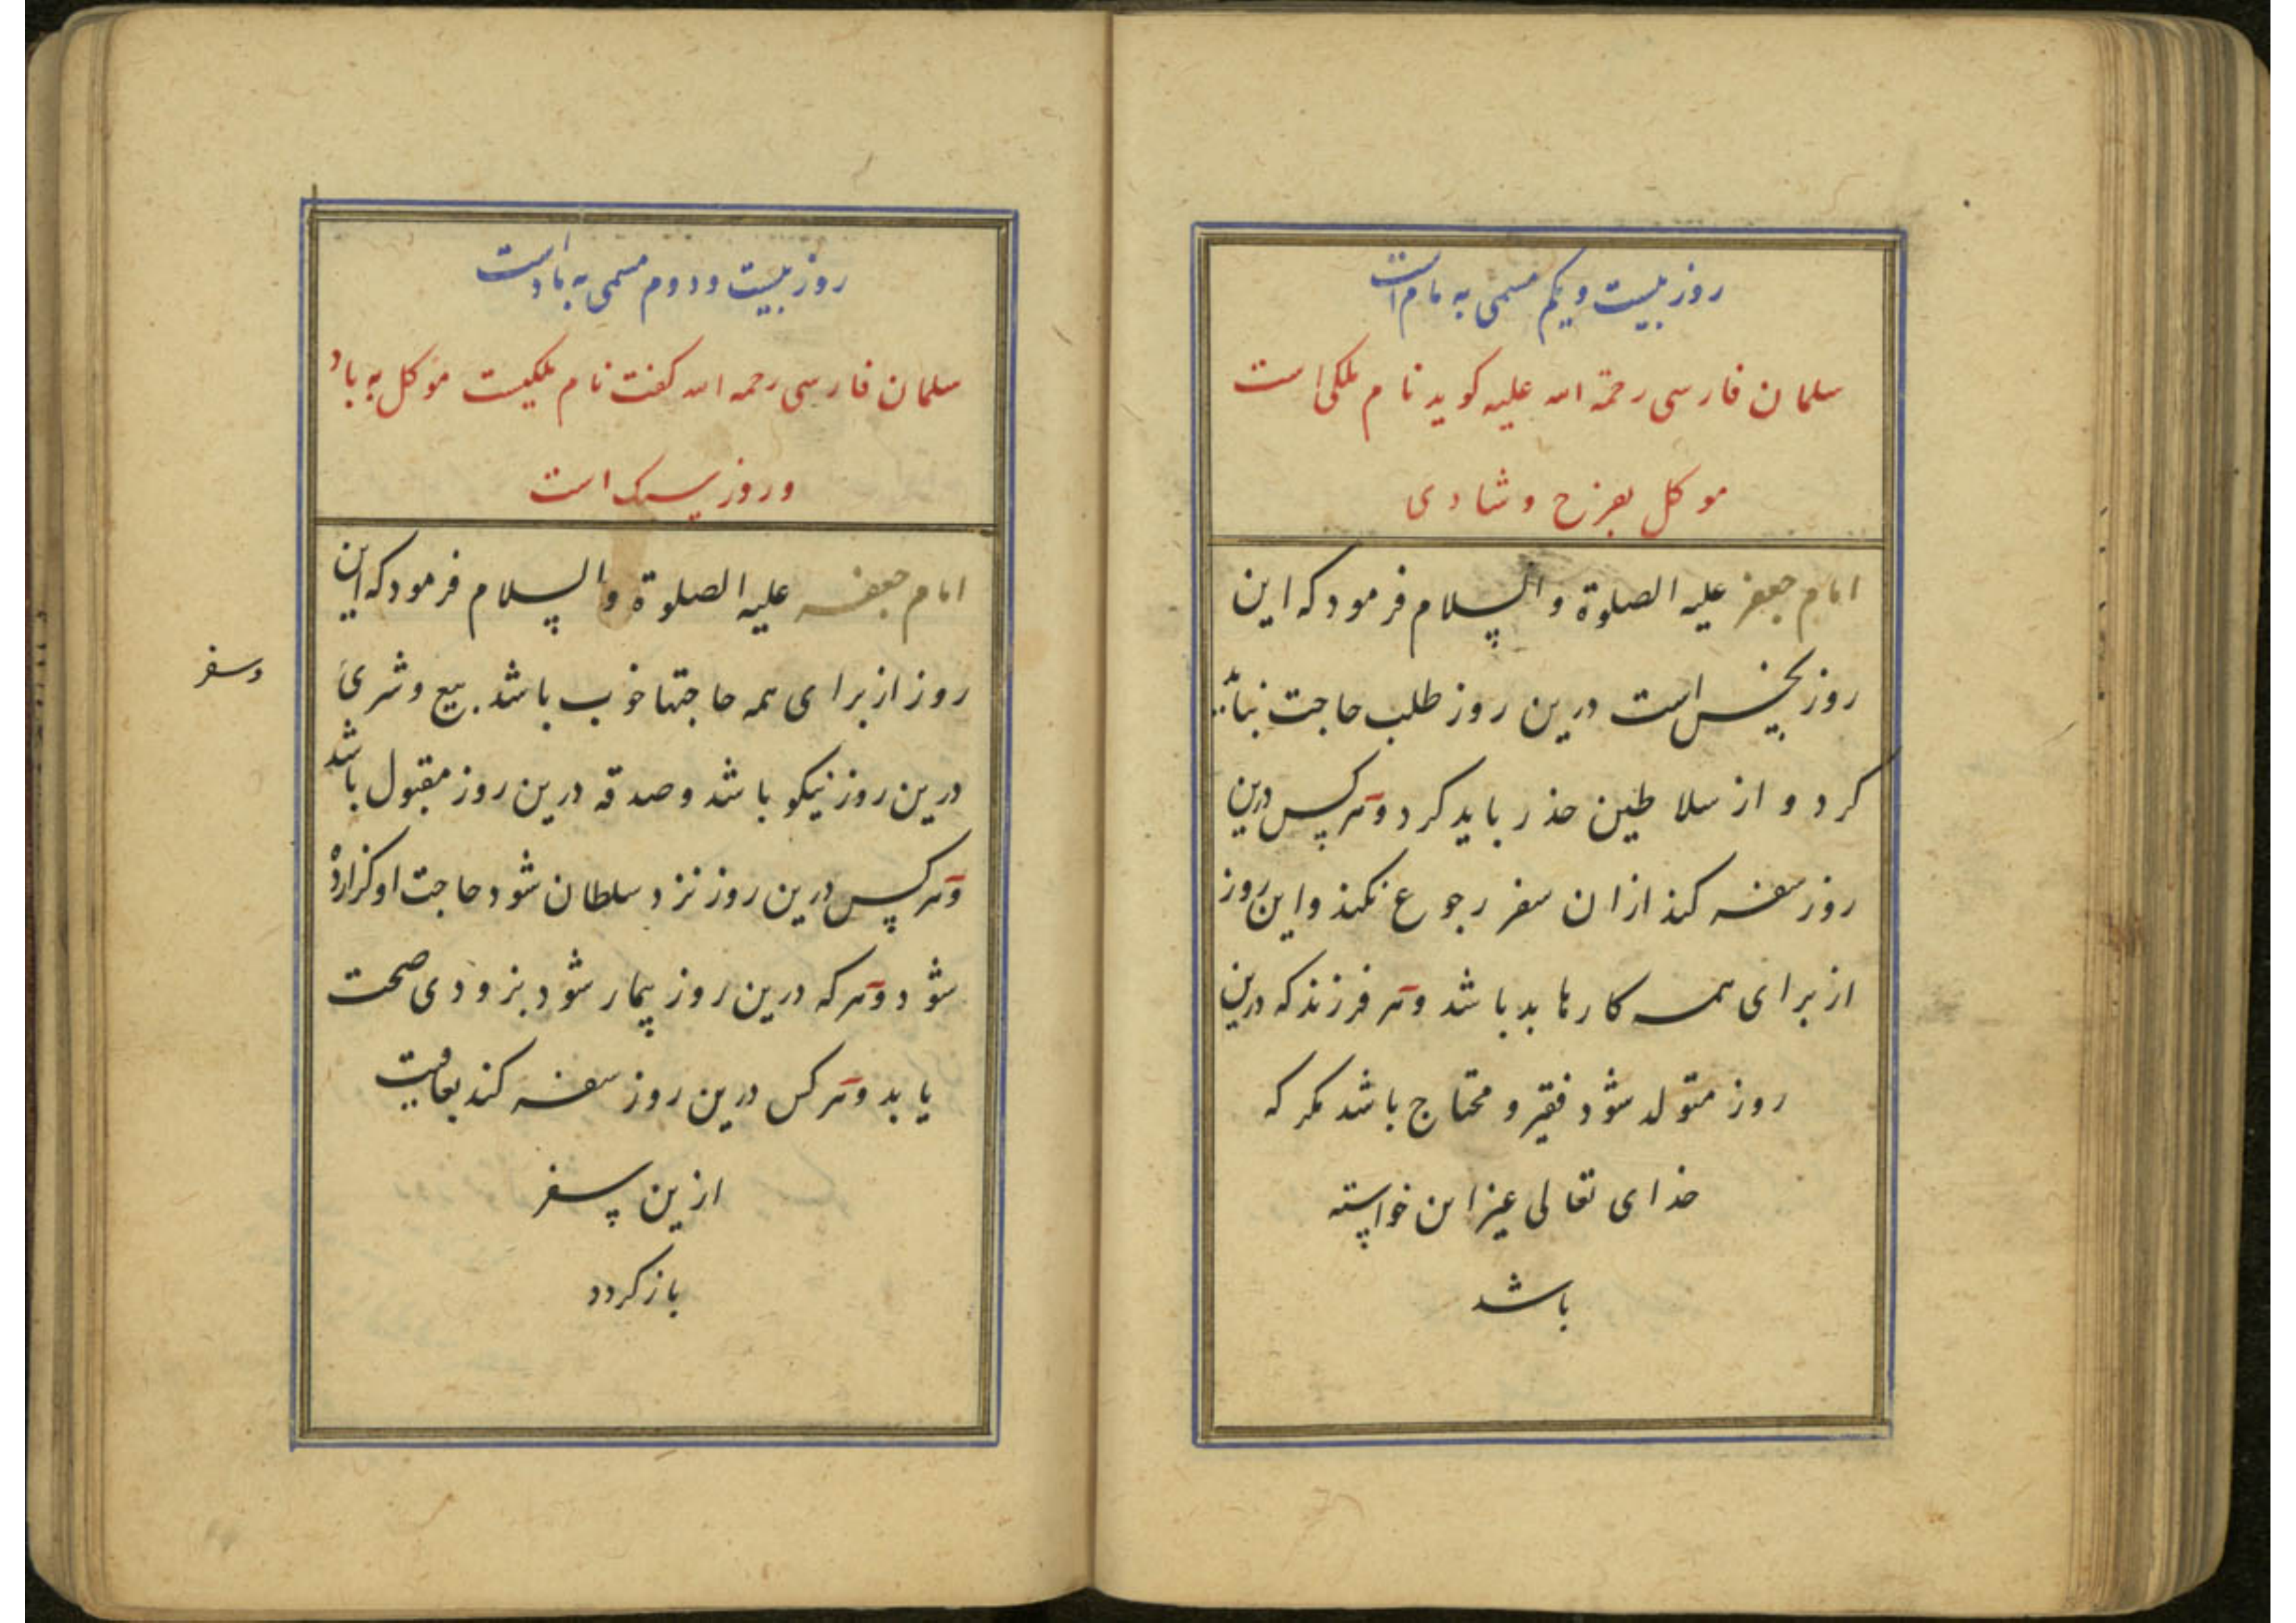 روز بیست و یکم مسمی به مام است
سلمان فارسی رحمة الله علیه کوید نام ملکی است
موکل بفرح و شادی
امام جعفر علیه الصلوة والسلام فرمود که این
روز نحس است درین روز طلب حاجت نباید
کرد و از سلاطین حذر باید کرد و هر کس درین
روز سفر کند ازان سفر رجوع نکند و این روز
از برای همه کارها بد باشد و هر فرزند که درین
روز متولد شود فقیر و محتاج باشد مکر که
خدای تعالی غیر این خواسته
باشد
روز بیست و دوم مسمی به باد است
سلمان فارسی رحمه الله کفت نام ملکیست موکل به باد
و روز سبک است
امام جعفر علیه الصلوة والسلام فرمود که این
روز از برای همه حاجتها خوب باشد بیع و شری
وسفر
درین روز نیکو باشد و صدقه درین روز مقبول باشد
و هر کس درین روز نزد سلطان شود حاجت او کزارده
شود و هر که درین روز بیمار شود بزودی صحت
یابد و هر کس درین روز سفر کند بعافیت
ازین سفر
باز کردد